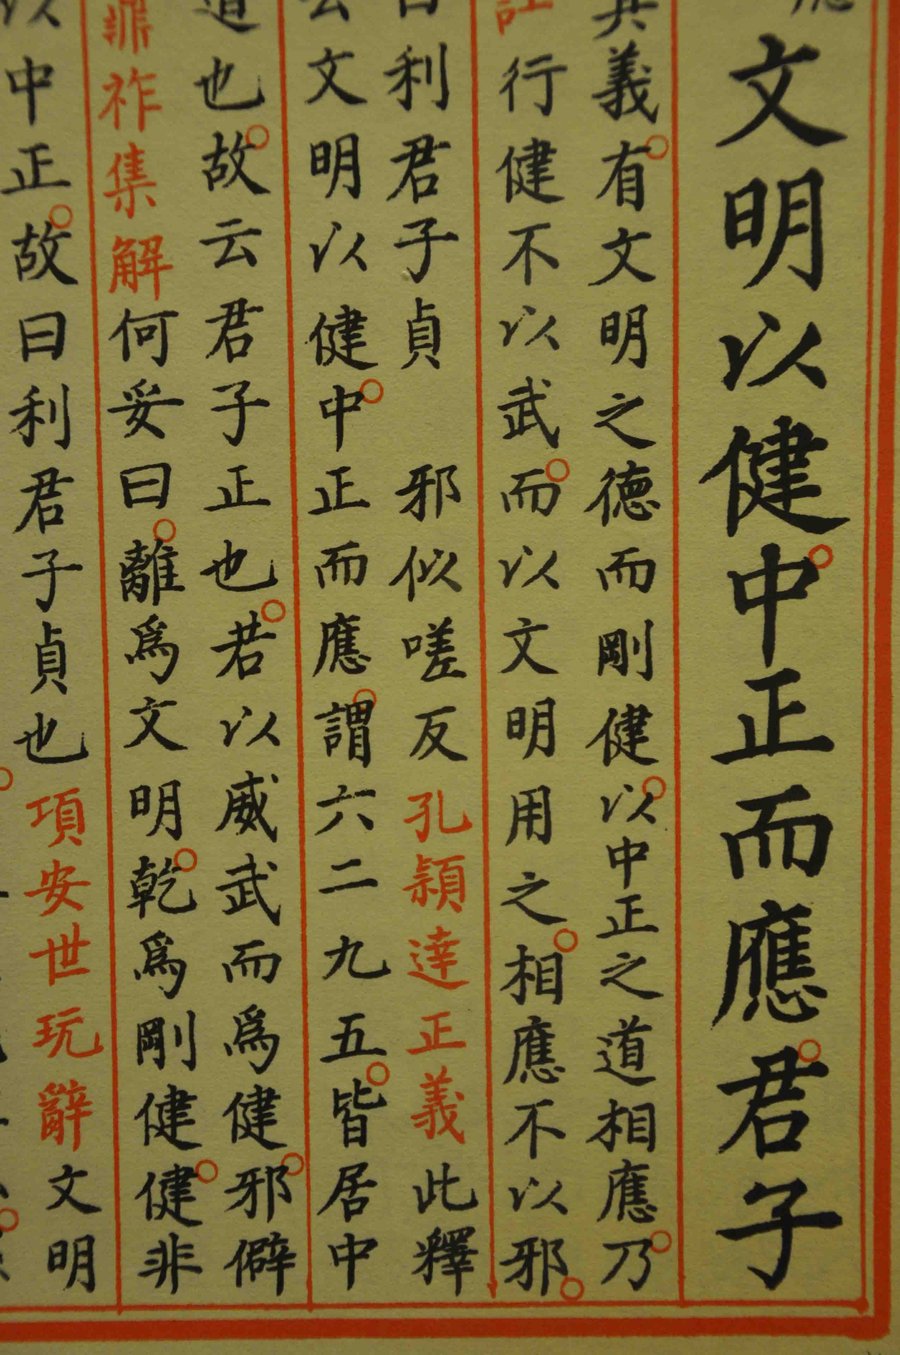 文明以健。中正而應。君子
義。有文明之德而剛健。以中正之道相應。乃
註行健不以武。而以文明用之。相應不以邪。
曰利君子貞 邪似嗟反孔穎達正義此釋
云文明以健。中正而應。謂六二九五。皆居中
道也。故云君子正也。若以威武而爲健。邪僻
鼎祚集解何妥曰。離爲文明。乾爲剛健。健非
以中正。故曰利君子貞也項安世玩辭文明